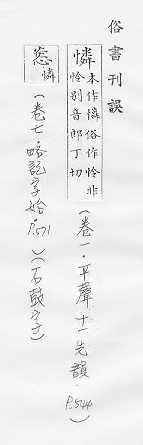 俗書刊誤
憐
本作憐俗作怜非
怜別音郎丁切
(卷一·平聲十一先韻·P.544)
憐
(卷七略記字始·P.571)(石鼓文)